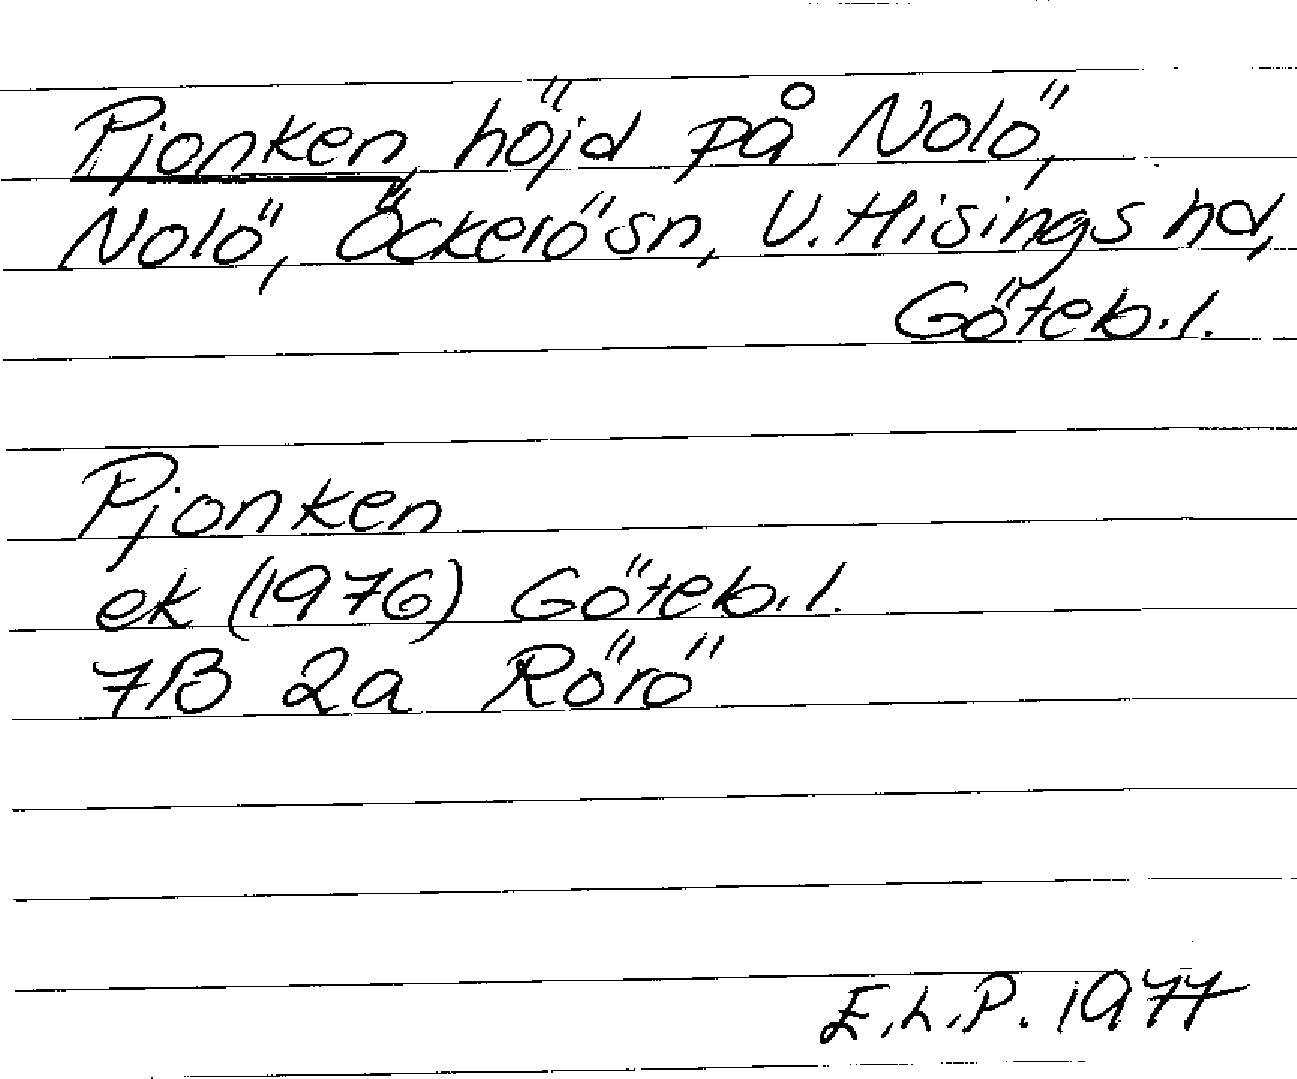 Pjonken, höjd på Nolö,
Nolö, Öckerö sn, V. Hisings hd,
Göteb. l.
Pjonken
ek (1976) Göteb. l.
7B 2a Rörö
E.L.P. 1977